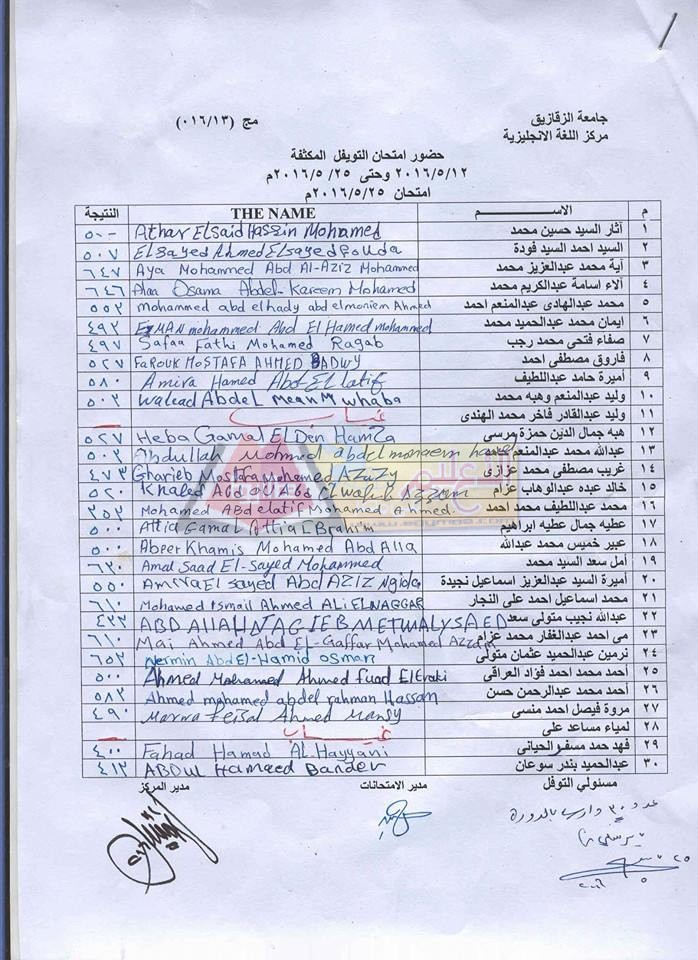 جامعة الزقازيق
مج (٠١٦/١٣)
مركز اللغة الانجليزية
حضور امتحان التويفل المكثفة
٢٠١٦/٥/١٢ وحتى ٢٠١٦/٥/٢٥م
امتحان ٢٠١٦/٥/٢٥م
م الاســـم THE NAME النتيجة
١ آثار السيد حسين محمد Athar Elsaid Hassin Mohamed ٥٠٠
٢ السيد احمد السيد فودة Elsayed Ahmed Elsayed Fouda ٥٠٧
٣ آية محمد عبدالعزيز محمد Aya Mohammed Abd Al-Aziz Mohammed ٦٤٧
٤ آلاء اسامة عبدالكريم محمد Alaa Osama Abdel-Kareem Mohamed ٦٤٦
٥ محمد عبدالهادى عبدالمنعم احمد mohammed abd elhady abd elmoniem Ahmed ٥٥٢
٦ ايمان محمد عبدالحميد محمد EMAN mohammed Abd El Hamed mohammed ٤٩٢
٧ صفاء فتحى محمد رجب Safaa Fathi Mohamed Ragab ٤٩٧
٨ فاروق مصطفى احمد FAROUK MOSTAFA AHMED BADWY ٥٢٧
٩ أميرة حامد عبداللطيف Amira Hamed Abd El latif ٥٨٠
١٠ وليد عبدالمنعم وهبه محمد walead Abdel Meanm whaba ٥٠٢
١١ وليد عبدالقادر فاخر محمد الهندى غياب
١٢ هبه جمال الدين حمزة مرسى Heba Gamal ELDen Hamza ٥٢٧
١٣ عبدالله محمد عبدالمنعم Abdullah Mohmed abdelmonaem ٥٠٢
١٤ غريب مصطفى محمد عزازى Gharieb Mostafa Mohamed AZaZy ٤٧٣
١٥ خالد عبده عبدالوهاب عزام Khaled Abdou Abd Elwahab Azzam ٥٢٠
١٦ محمد عبداللطيف محمد احمد Mohamed ABdelatif Mohamed Ahmed. ٣٥٢
١٧ عطيه جمال عطيه ابراهيم Attia Gamal Attia LBrahim ٥٠٠
١٨ عبير خميس محمد عبدالله Abeer Khamis Mohamed Abd Alla ٥٠٠
١٩ أمل سعد السيد محمد Amal Saad EL-Sayed Mohammed ٦٢٠
٢٠ أميرة السيد عبدالعزيز اسماعيل نجيدة Amira El sayed Abd AZIZ Ngida ٥٥٠
٢١ محمد اسماعيل احمد على النجار Mohamed Ismail Ahmed ALi ELNAGGAR ٦١٠
٢٢ عبدالله نجيب متولى سعد ABD ALLAH NAGIEB METWALY SAED ٤٢٢
٢٣ مى احمد عبدالغفار محمد عزام Mai Ahmed Abd EL-Gaffar Mohamed Azzam ٦١٠
٢٤ نرمين عبدالحميد عثمان متولى Nermin Abd El-Hamid Osman ٦٥٢
٢٥ أحمد محمد احمد فؤاد العراقى Ahmed Mohamed Ahmed fuad ELEraki ٥٠٠
٢٦ أحمد محمد عبدالرحمن حسن Ahmed mohamed abdel rahman Hassan ٥٨٢
٢٧ مروة فيصل احمد منسى Marwa Feisal Ahmed Mansy ٤٩٠
٢٨ لمياء مساعد على غياب
٢٩ فهد حمد مسفر الحيانى Fahad Hamad AL Hayyani ٤٠٠
٣٠ عبدالحميد بندر سوعان ABDUL Hameed Bander ٤١٣
مسئولي التوفل مدير الامتحانات مدير المركز
عدد ٣٠ دارس بالدورة